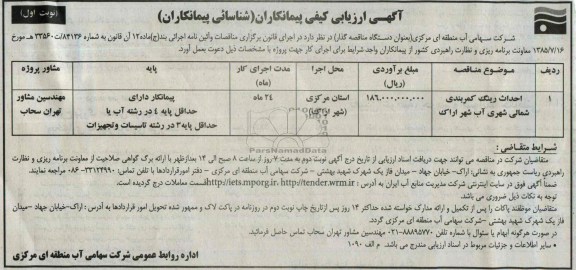 (نوبت اول)
آگهی ارزیابی کیفی پیمانکاران(شناسائی پیمانکاران)
شرکت سهامی آب منطقه ای مرکزی(بعنوان دستگاه مناقصه گذار) در نظر دارد در اجرای قانون برگزاری مناقصات وآئین نامه اجرائی بند(ج)ماده۱۲ آن قانون به شماره ۸۴۱۳۶/ت۳۳۵۶۰ هـ مورخ
۱۳۸۵/۷/۱۶ معاونت برنامه ریزی و نظارت راهبردی کشور از پیمانکاران واجد شرایط برای اجرای کار جهت پروژه با مشخصات ذیل دعوت بعمل آورد.
ردیف موضوع مناقصه مبلغ برآوردی (ریال) محل اجرا مدت اجرای کار (ماه) پایه مشاور پروژه
۱ احداث رینگ کمربندی شمالی شهری آب شهر اراک ۱۸۶,۰۰۰,۰۰۰,۰۰۰ استان مرکزی (شهر اراک) ۲۴ ماه پیمانکار دارای حداقل پایه ۴ در رشته آب یا حداقل پایه۳ در رشته تاسیسات وتجهیزات مهندسین مشاور تهران سحاب
شرایط متقاضی :
متقاضیان شرکت در مناقصه می توانند جهت دریافت اسناد ارزیابی از تاریخ درج آگهی نوبت دوم به مدت ۷ روز از ساعت ۸ صبح الی ۱۴ بعدازظهر با ارائه برگ گواهی صلاحیت از معاونت برنامه ریزی و نظارت
راهبردی ریاست جمهوری به نشانی: اراک- خیابان جهاد - میدان فاز یک شهرک شهید بهشتی - شرکت سهامی آب منطقه ای مرکزی - دفتر امور قراردادها با تلفن تماس: ۳۳۱۲۴۹۹۰-۰۸۶ مراجعه نمایند.
ضمناً آگهی فوق در سایت اینترنتی شرکت مدیریت منابع آب ایران به آدرس : http://tender.wrm.ir و http://iets.mporg.ir است معاملات درج گردیده است.
توجه به نکات ذیل ضروری می باشد.
متقاضیان موظفند پاکات را پس از تکمیل و ارائه مدارک خواسته شده حداکثر ۱۴ روز پس ازتاریخ چاپ نوبت دوم در روزنامه در پاکت لاک و ممهور شده تحویل امور قراردادها به آدرس : اراک-خیابان جهاد -میدان
فاز یک شهرک شهید بهشتی -شرکت سهامی آب منطقه ای مرکزی گردد.
در صورت هرگونه ابهام یا سئوال با شماره تلفن ۸۸۸۹۵۷۷۰-۰۲۱ مهندسین مشاور تهران سحاب تماس حاصل فرمائید.
• سایر اطلاعات و جزئیات مربوط در اسناد ارزیابی مندرج می باشد. م الف ۱۰۹۰
اداره روابط عمومی شرکت سهامی آب منطقه ای مرکزی